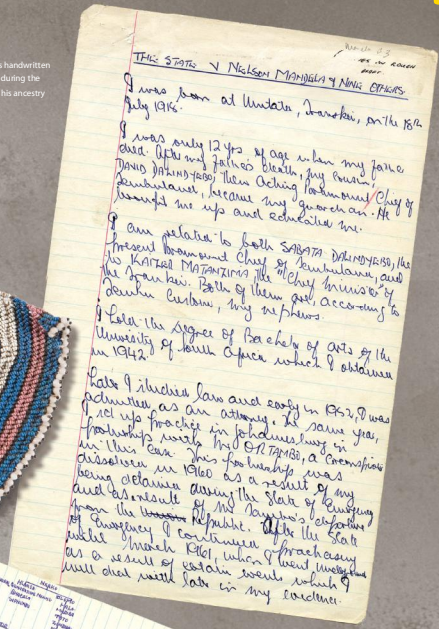 s handwritten
during the
his ancestry
THE STATE V NELSON MANDELA & NINE OTHERS.
I was born at Umtata, Transkei, on the 18th
July 1918.
I was only 12 yrs. of age when my father
died. After my father's death, my cousin,
DAVID DALINDYEBO, then acting Paramount Chief of
Tembuland, became my guardian. He
brought me up and educated me.
I am related to both SABATA DALINDYEBO, the
present Paramount Chief of Tembuland, and
to KAIZER MATANZIMA, the "Chief Minister" of
the Transkei. Both of them are, according to
Tembu Custom, my nephews.
I hold the degree of Bachelor of arts of the
University of South Africa which I obtained
in 1942.
Later I studied law and early in 1952, I was
admitted as an attorney. The same year,
I set up practice in Johannesburg in
partnership with Mr O.R. TAMBO, a conspirator
in this case. This partnership was
dissolved in 1960 as a result of my
being detained during the State of Emergency
and as a result of Mr Tambo's departure
from the Republic. After the State
of Emergency I continued practising
until March 1961, when I went underground
as a result of certain events which I
will deal with later in my evidence.